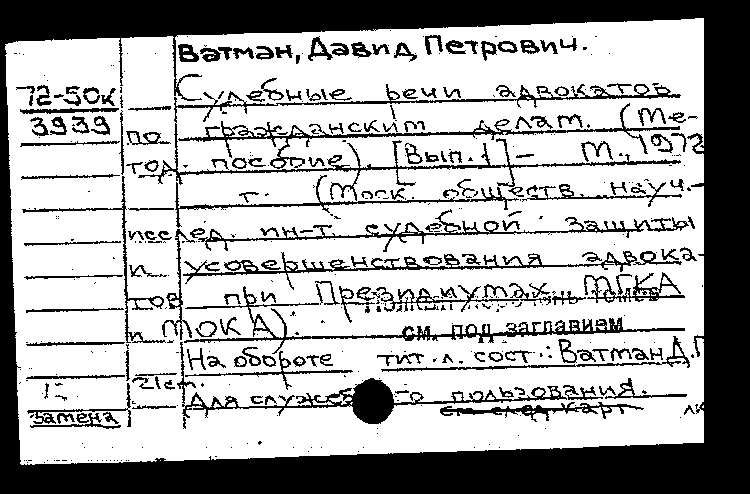 Ватман, Давид Петрович.
72-50к Судебные речи адвокатов
3939 по гражданским делам. (Ме-
тод. пособие). [Вып. 1] – М., 1972
г. (Моск. обществ. науч.-
исслед. ин-т судебной защиты
и усовершенствования адвока-
тов при Президиумах МГКА
и МОКА).
см. под заглавием
На обороте тит. л. сост.: Ватман Д.П
21 см.
Для служебного пользования.
замена см след карт